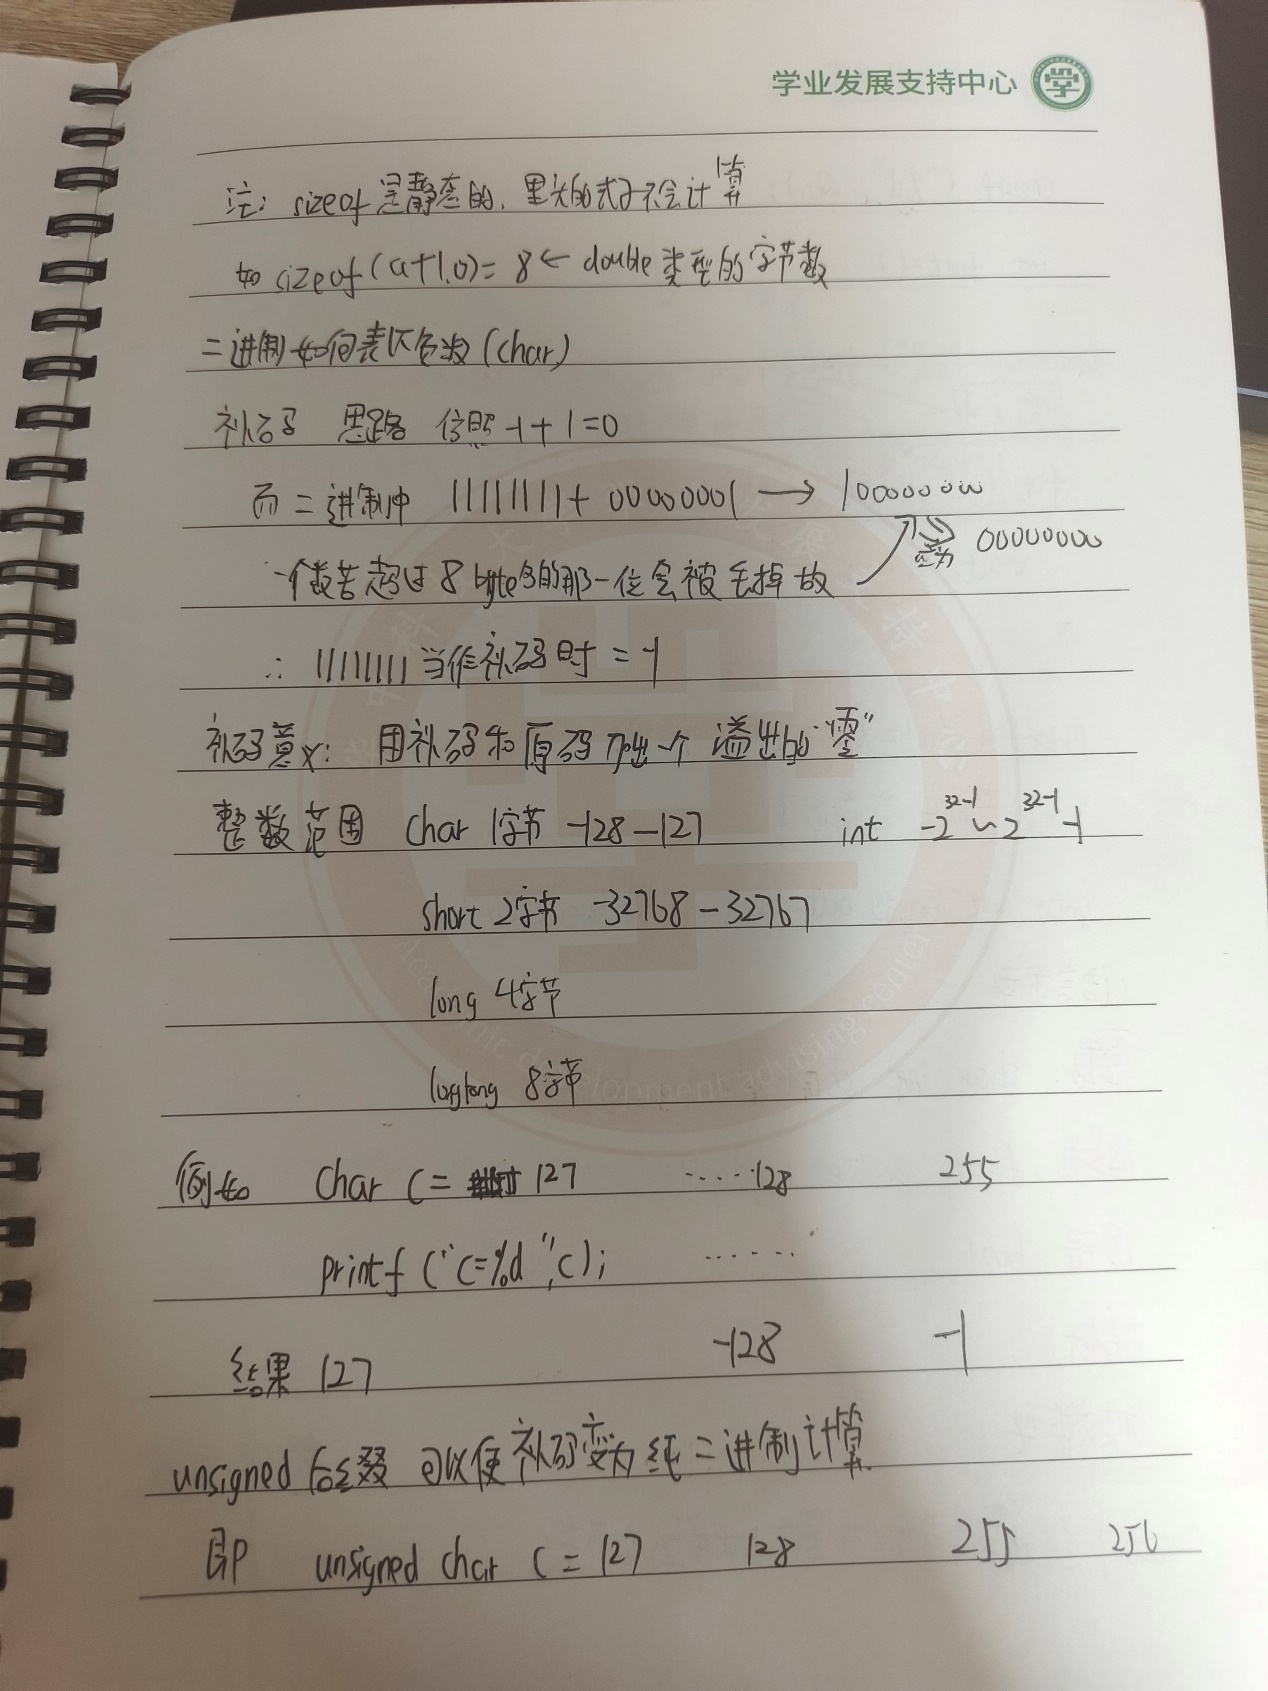 学业发展支持中心
注: sizeof 是静态的. 里头的式子不会计算
如 sizeof(a+1.0)= 8 ← double 类型的字节数
二进制如何表示负数(char)
补码 思路 仿照 -1+1=0
而二进制中 11111111+ 00000001 → 100000000
变为 00000000
一个数若超过 8 byte多的那一位会被丢掉 故
∴ 11111111 当作补码时 = -1
补码意义: 用补码和原码加出一个 溢出的“零”
整数范围 char 1字节 -128—127 int -2^32-1 ~ 2^32-1 -1
short 2字节 -32768—32767
long 4字节
longlong 8字节
例如 char c= 127 ·····128 255
printf("c=%d",c); ······
结果 127 -128 -1
unsigned 后缀 可以使补码变为纯二进制计算
即 unsigned char c = 127 128 255 256